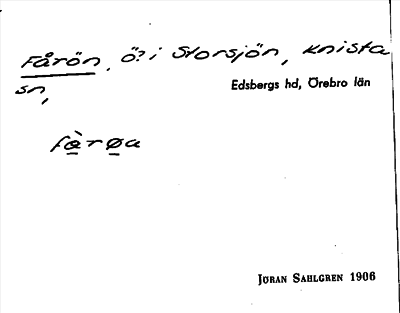 Fårön, ö? i Storsjön, Knista
sn,
Edsbergs hd, Örebro län
fàrøa
JÖRAN SAHLGREN 1906